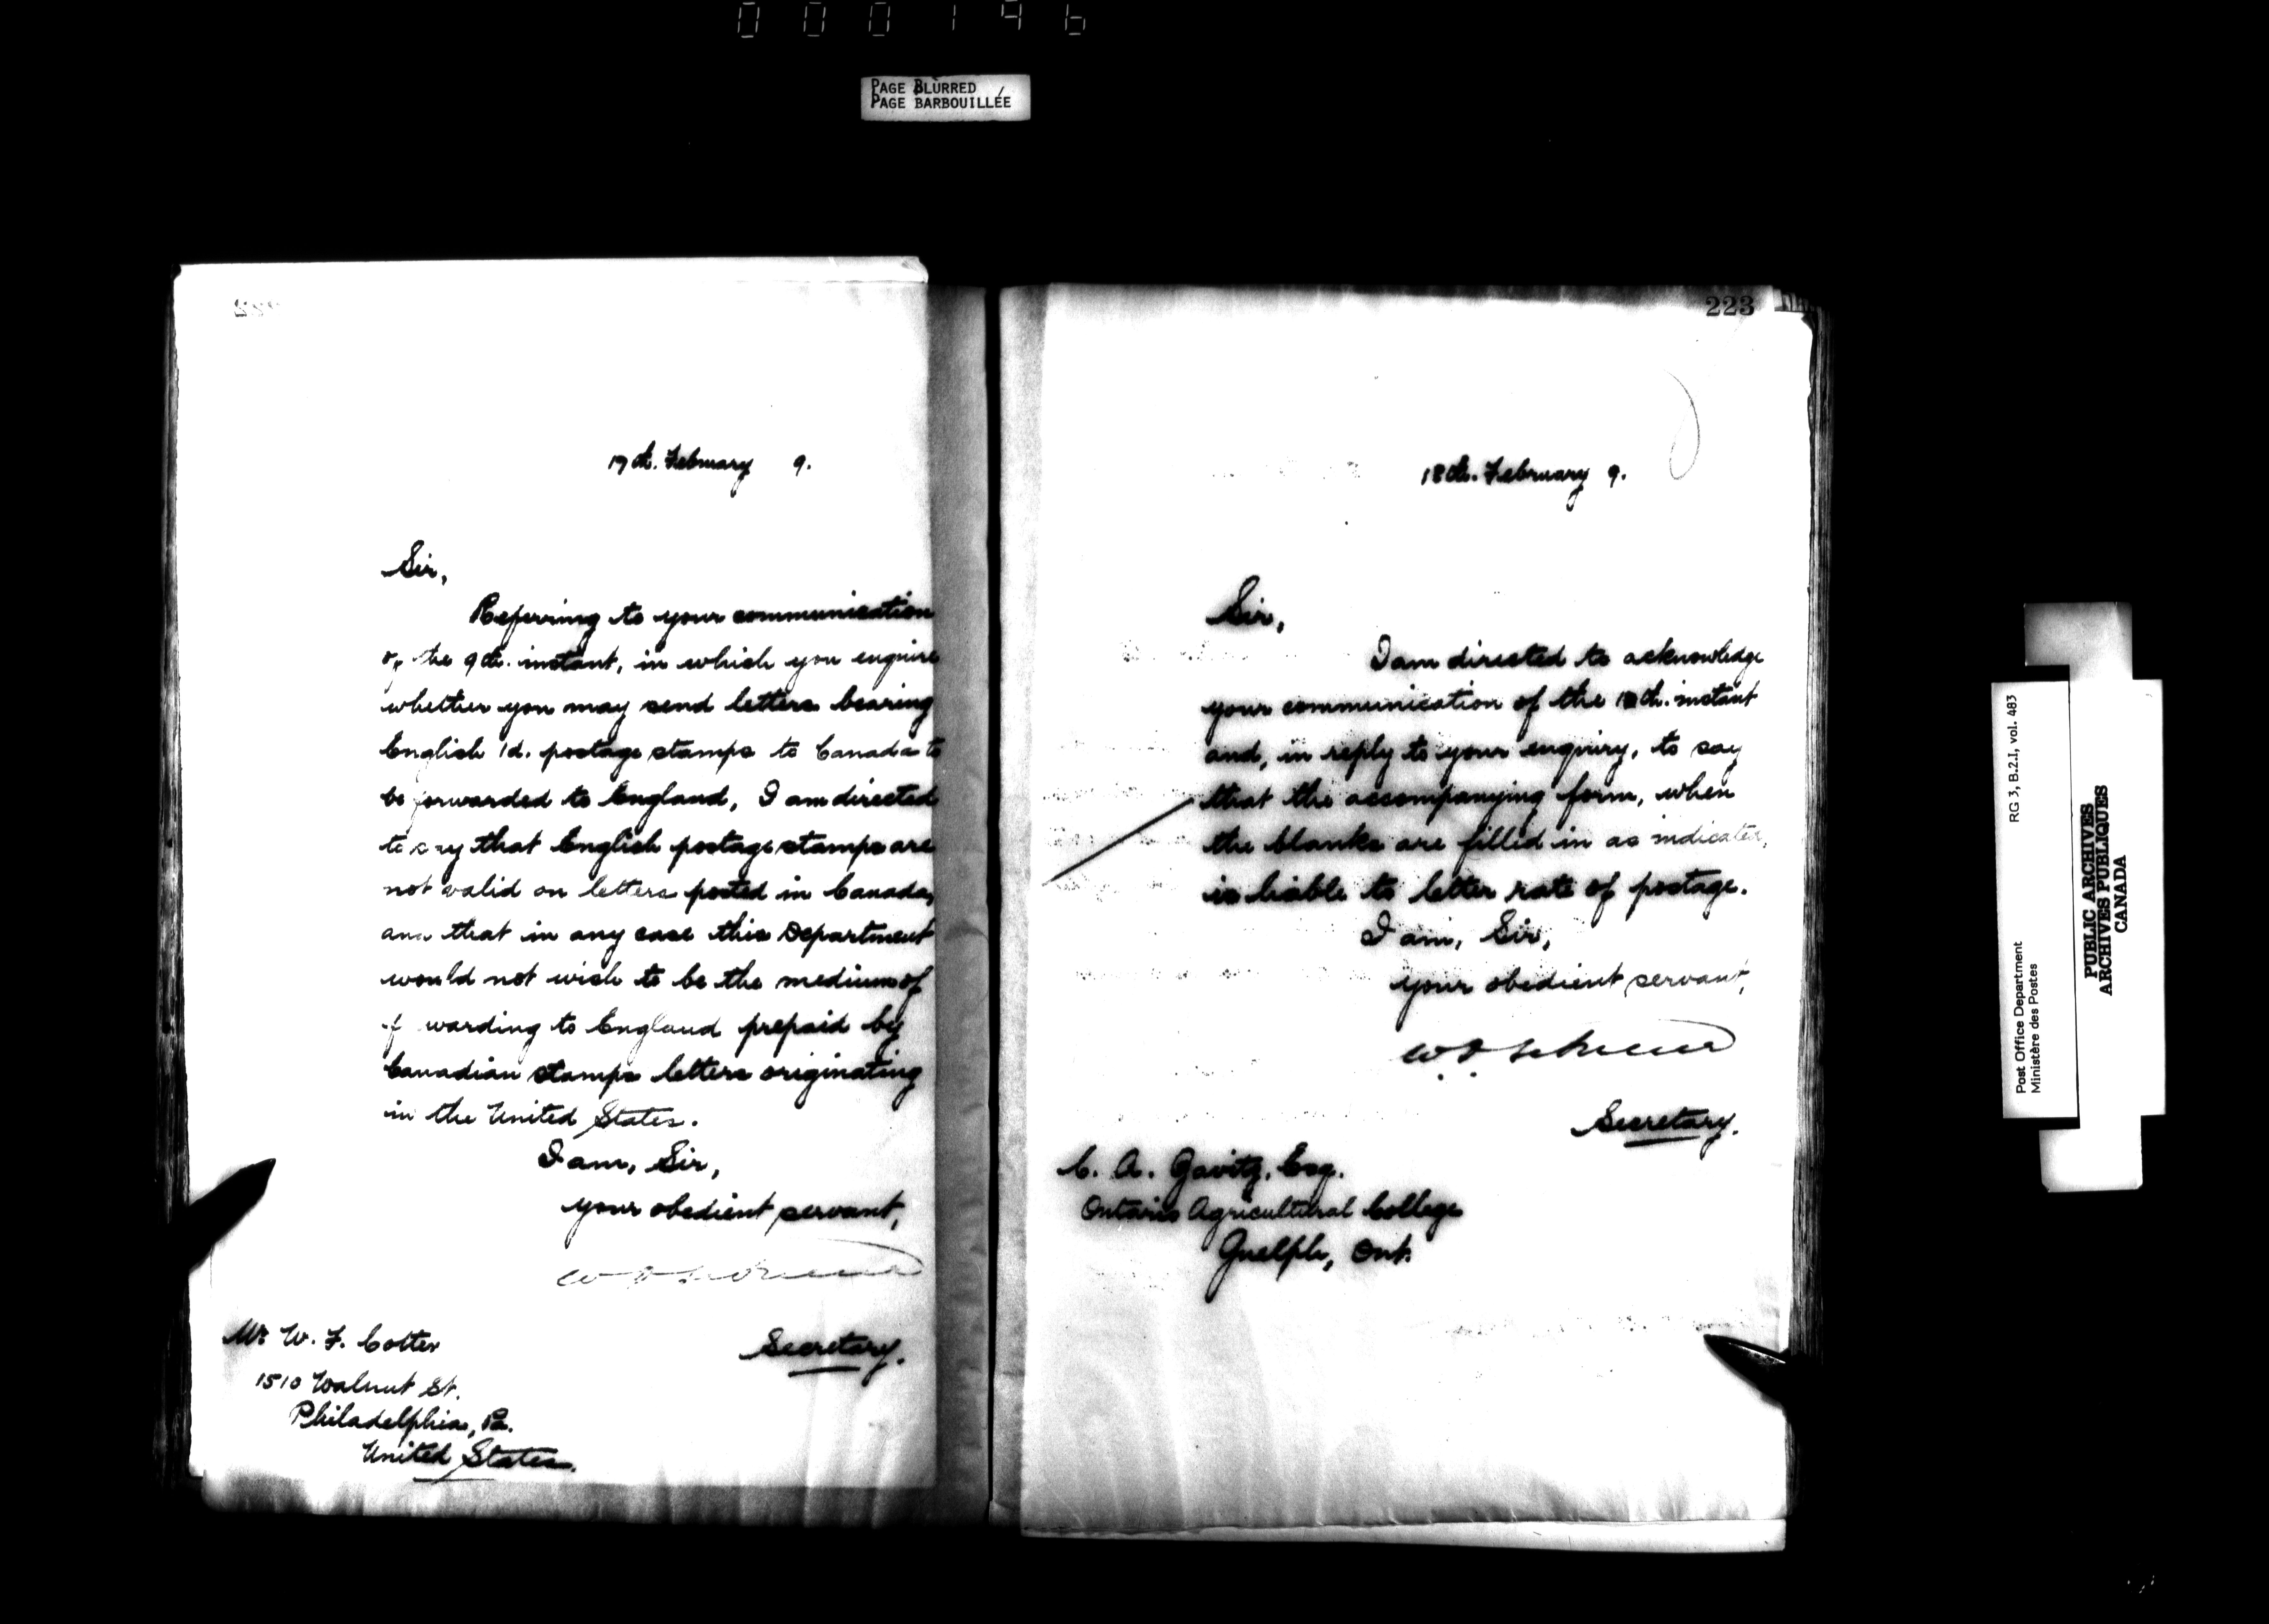 000196
PAGE BLURRED
PAGE BARBOUILLÉE
17th. February 9.
Sir,
Referring to your communication
of the 9th. instant, in which you enquire
whether you may send letters bearing
English 1d. postage stamps to Canada to
be forwarded to England, I am directed
to say that English postage stamps are
not valid on letters posted in Canada,
and that in any case this Department
would not wish to be the medium of
f warding to England prepaid by
Canadian stamps letters originating
in the United States.
I am, Sir,
your obedient servant,
Secretary.
Mr W. F. Cotter
1510 Walnut St.
Philadelphia, Pa.
United States.
223
18th. February 9.
Sir,
I am directed to acknowledge
your communication of the instant
and, in reply to your enquiry, to say
that the accompanying form, when
the blanks are filled in as indicated,
is liable to letter rate of postage.
I am, Sir,
your obedient servant,
Secretary.
C. A. Zavitz, Esq.
Ontario Agricultural College
Guelph, Ont.
RG 3, B.2.1, vol. 483
Post Office Department
Ministère des Postes
PUBLIC ARCHIVES
ARCHIVES PUBLIQUES
CANADA